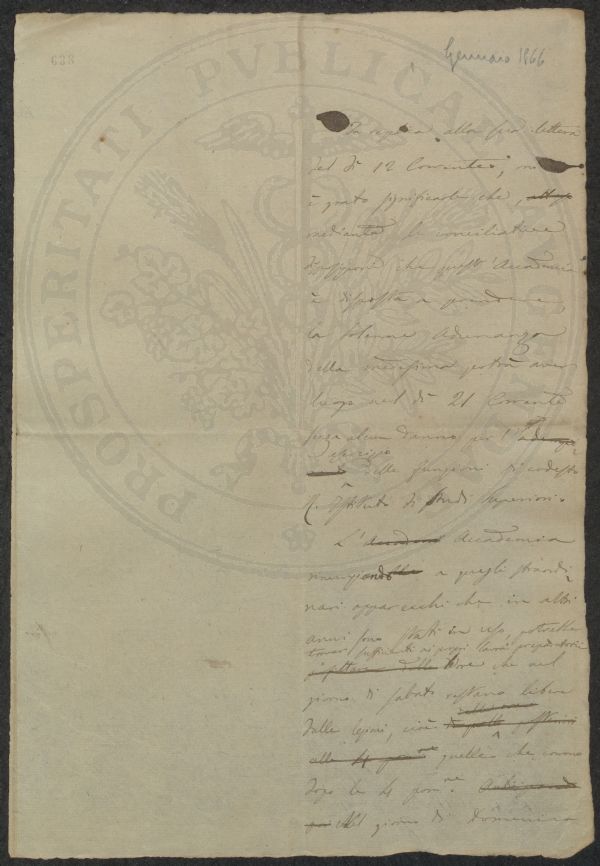 633
Gennaio 1866
PROSPERITATI PUBLICAE AUGENDAE
In replica alla sua lettera
del dì 12 Corrente, mi
è grato significarle che,
mediante le conciliative
disposizioni che quest'Accademia
è disposta a prendere,
la solenne Adunanza
della medesima potrà aver
luogo nel dì 21 Corrente
senza alcun danno per l'
esercizio
delle funzioni di codesto
R. Istituto di Studi Superiori.
L' Accademia
rinunziando a quegli straordi-
nari apparecchi che in altri
anni sono stati in uso, potrebbe
trovar sufficienti ai propri lavori preparatori
le ore che nel
giorno di sabato restano libere
dalle lezioni, cioè
alle 4 pom. quelle che corrono
dopo le 4 pom.
Nel giorno di Domenica